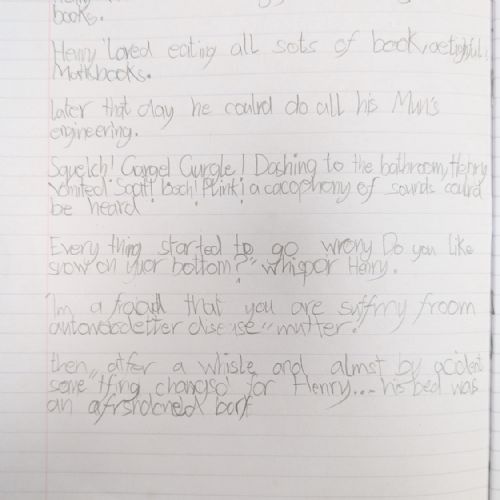 books.
Henry loved eating all sots of book,
Mathbooks.
Later that day he could do all his Mum's
engineering.
Squelch! Gargel Gurgle! Dashing to the bathroom, Henry
Vomited! Splat! Boch! Plink! a cacophony of sounds could
be heard
Every thing started to go wrong Do you like
snow on your bottom?" whispar Henry.
"Im a fraid that you are suffring froom
disease" mutter.
then, after a while and almst by acident
some thing changed for Henry... his bed was
an